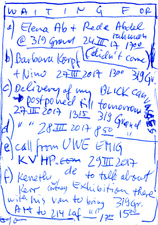 WAITING FOR
a) Elena Ab + Reda Abdel
@ 319 Grand 24 III 17 1300
(didn't come)
b) Barbara Korpl
+ Nino 27 III 2017 1300 319 Gr.
c) Delivery of my BLACK CANVASES
→ postponed till tomorrow
27 III 2017 1315 319 Grand
d) " " 28 III 2017 850 "
e) call from UWE EMIG
KVHP.com 29 III 2017
f) Keneth de to talk about
Kerr Exhibition there
with his van to bring 319Gr.
AM to 214 laf 1500